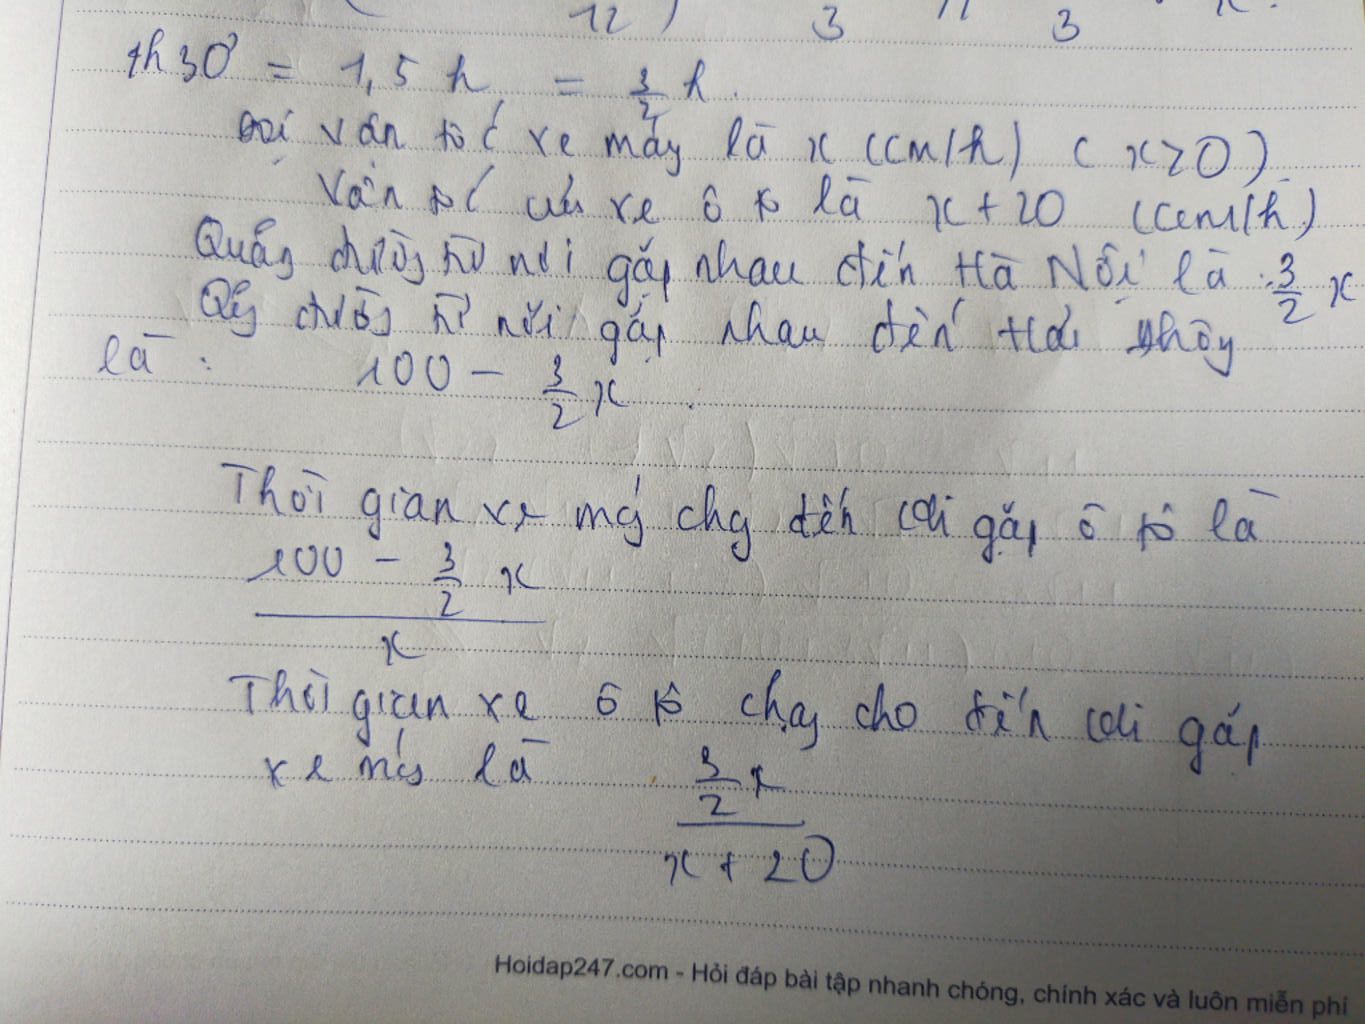 12) 3 3
1h30' = 1,5 h = 3/2 h.
Gọi vận tốc xe máy là x (km/h) (x>0)
Vận tốc của xe ô tô là x+20 (km/h)
Quãng đường từ nơi gặp nhau đến Hà Nội là : 3/2 x
Qãg đường từ nơi gặp nhau đến Hải Phòng
là : 100 - 3/2 x .
Thời gian xe máy chạy đến khi gặp ô tô là
100 - 3/2 x
x
Thời gian xe ô tô chạy cho đến khi gặp
xe máy là 3/2 x
x + 20
Hoidap247.com - Hỏi đáp bài tập nhanh chóng, chính xác và luôn miễn phí